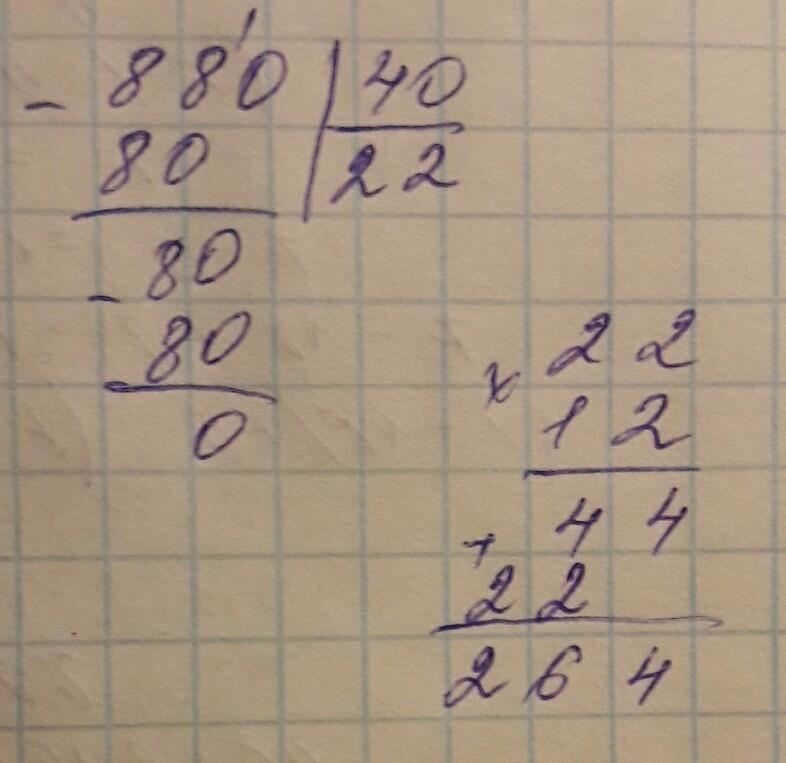 - 880 | 40
80 | 22
- 80
80
0
x 22
12
+ 44
22
264